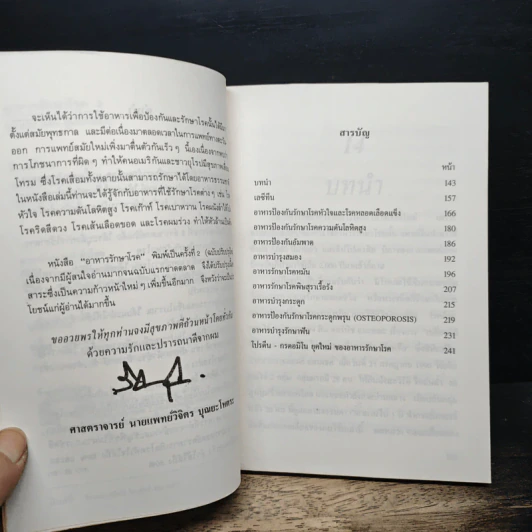 จะเห็นได้ว่าการใช้อาหารเพื่อป้องกันและรักษาโรคนั้นได้
ตั้งแต่สมัยพุทธกาล และมีต่อเนื่องมาตลอดเวลาในการแพทย์ทาง
ออก การแพทย์สมัยใหม่เพิ่งมาตื่นตัวกันเร็วๆ นี้เองเนื่องจาก
การโภชนาการที่ผิดๆ ทำให้คนอเมริกันและชาวยุโรปมีสุขภาพ
โทรม ซึ่งโรคเสื่อมทั้งหลายนั้นสามารถรักษาได้โดยอาหาร
ในหนังสือเล่มนี้ท่านจะได้รู้จักกับอาหารที่ใช้รักษาโรคต่างๆ เช่น
หัวใจ โรคความดันโลหิตสูง โรคเก๊าท์ โรคเบาหวาน
โรคริดสีดวง โรคเส้นเลือดขอด และโรคผมร่วง ทำให้
หนังสือ "อาหารรักษาโรค" พิมพ์เป็นครั้งที่ 2
เนื่องจากมีผู้สนใจอ่านมากจนฉบับแรกขาดตลาด จึงได้ปรับปรุง
สาระซึ่งเป็นความก้าวหน้าใหม่ๆ เพิ่มขึ้นอีกมาก จึงหวังว่า
โยชน์แก่ผู้อ่านได้มากขึ้น
ขออวยพรให้ทุกท่านจงมีสุขภาพดีถ้วนหน้าโดยทั่วกัน
ด้วยความรักและปรารถนาดีจากผม
ศาสตราจารย์ นายแพทย์วิจิตร บุณยะโหตระ
สารบัญ
หน้า
บทนำ 143
เลซิทีน 157
อาหารป้องกันรักษาโรคหัวใจและโรคหลอดเลือดแข็ง 166
อาหารป้องกันรักษาโรคความดันโลหิตสูง 180
อาหารป้องกันอัมพาต 190
อาหารบำรุงสมอง 192
อาหารรักษาโรคหมัน 196
อาหารรักษาโรคพิษสุราเรื้อรัง 207
อาหารบำรุงกระดูก 215
อาหารป้องกันรักษาโรคกระดูกพรุน (OSTEOPOROSIS) 219
อาหารบำรุงรักษาฟัน 231
โปรตีน - กรดอมิโน ยุคใหม่ ของอาหารรักษาโรค 241